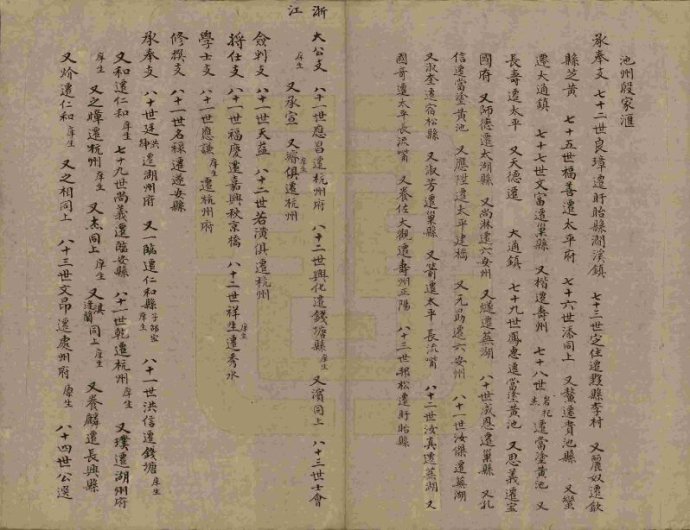 池州殷家滙
承奉支 七十二世良璋遷盱眙縣澗溪鎮 七十三世定住遷黟縣李村 又嚴奴遷歙
縣芝黄 七十五世福善遷太平府 七十六世添同上 又鰲遷貴池縣 又蠻
遷大通鎮 七十七世文富遷巢縣 又楷遷壽州 七十八世 遷當塗黄池 又
長壽遷太平 又天德遷 大通鎮 七十九世鳳惠遷當塗黄池 又思義遷寧
國府 又師德遷太湖縣 又尚淋遷六安州 又縫遷蕪湖 八十世咸恩遷巢縣 又礼
信遷當塗黄池 又應陞遷太平建橋 又元勗遷六安州 八十一世汝傑遷蕪湖
又淑奎遷宿松縣 又淑芳遷巢縣 又箭遷太平長流嘴 八十二世汝真遷蕪湖 又
國奇遷太平長流嘴 又養佐大觀遷壽州正陽 八十三世報松遷盱眙縣
浙江
太公支 八十一世應昌遷杭州府 八十二世興化遷錢塘縣庠生 又濱同上 八十三世士會
庠生 又承宣 又濬俱遷杭州
僉判支 八十一世天益 八十二世若濆俱遷杭州
將仕支 八十一世福慶遷嘉興秋京橋 八十二世祥生遷秀水庠生
學士支 八十二世應謙庠生 遷杭州府
修撰支 八十一世名祿遷遂安縣
承奉支 八十世廷 遷湖州府 又一臨遷仁和縣庠生 八十一世洪信遷錢塘庠生
又和遷仁和庠生 七十九世尚義遷臨安縣 八十一世乾遷杭州庠生 又璞遷湖州府
庠生 又之焯遷杭州庠生 又杰同上庠生 又 同上庠生 又養麟遷長興縣
又炌遷仁和庠生 又之相同上 八十三世文昂遷處州府庠生 八十四世公選